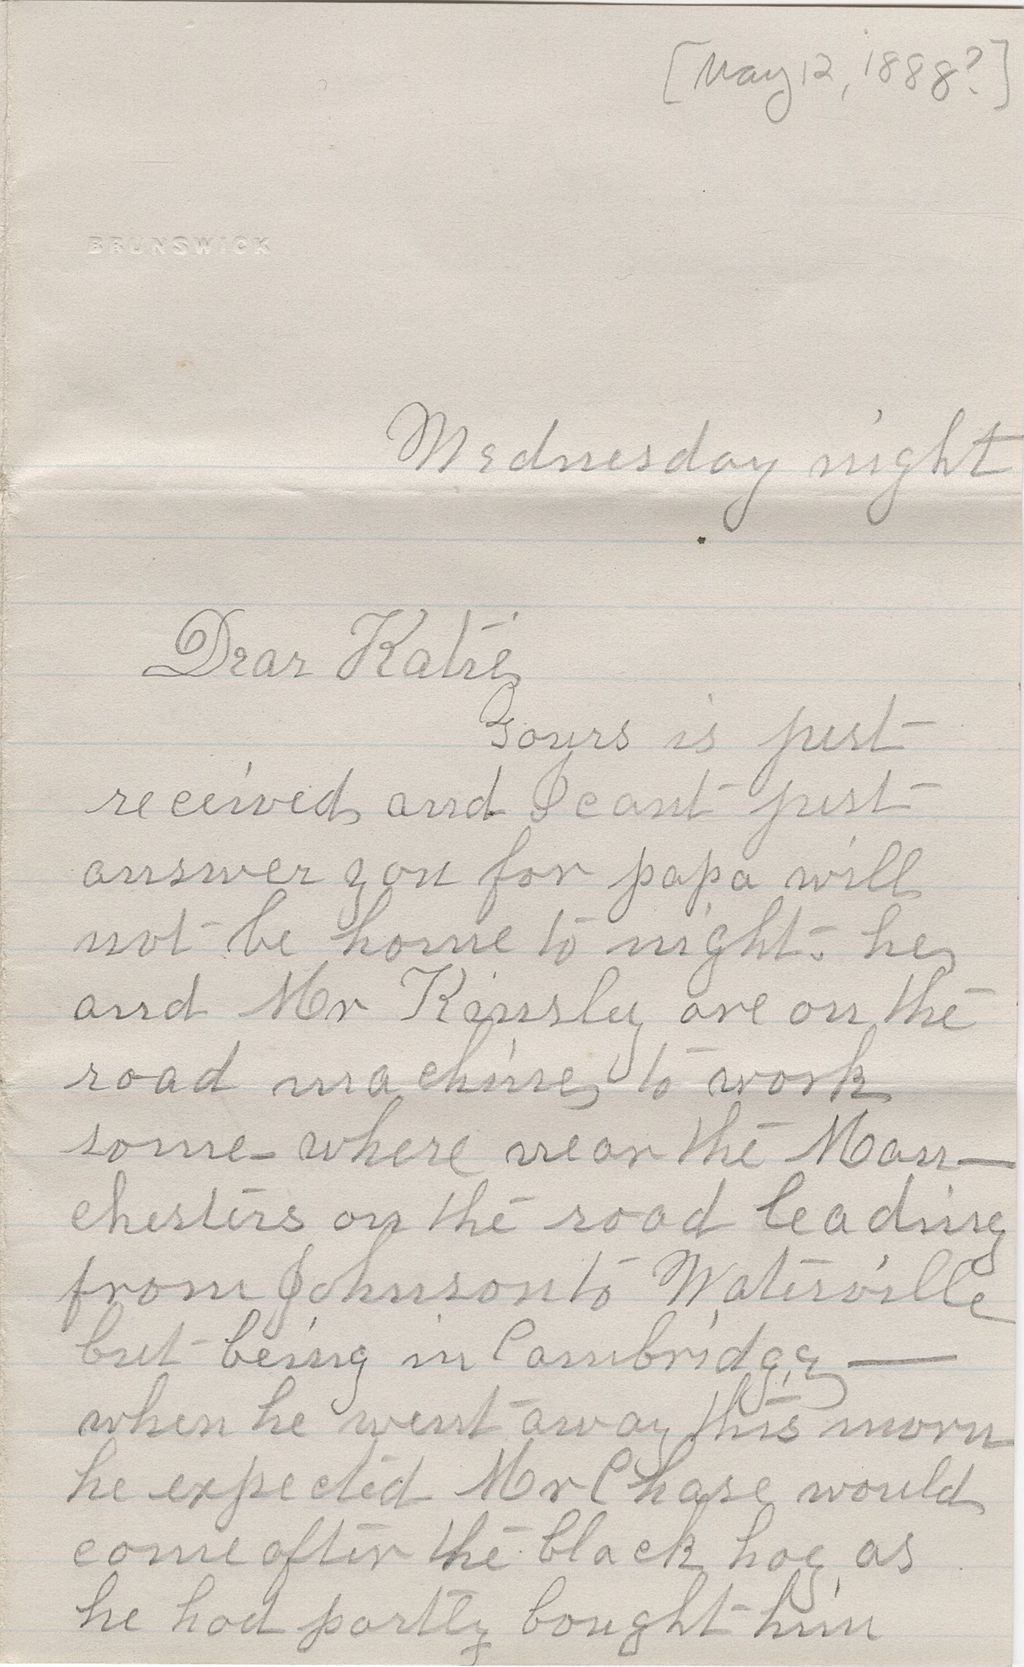 [May 12, 1888?]
BRUNSWICK
Wednesday night
Dear Katie,
Yours is just
received, and I cant just
answer you for papa will
not be home to night. he
and Mr Kinsly are on the
road machine, to work
some-where near the Man-
chesters on the road leading
from Johnson to Waterville
but being in Cambridge —
when he went away this morn
he expected Mr Chase would
come after the black hog as
he had partly bought him